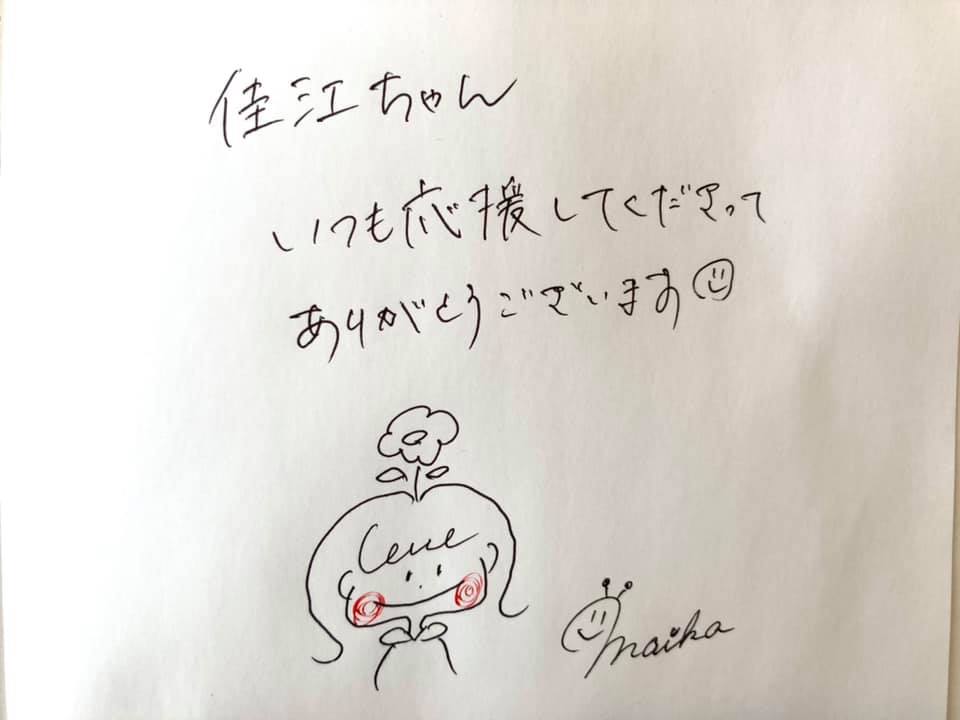 佳江ちゃん
いつも応援してくださって
ありがとうございます
maika